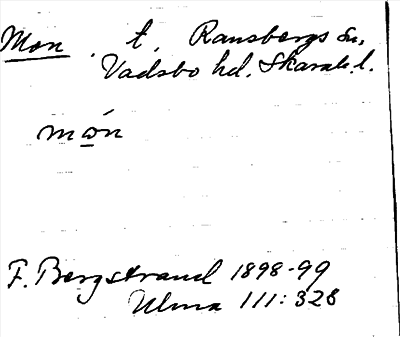 Mon t. Ransbergs sn,
Vadsbo hd. Skarab. l.
mo̲n
F. Bergstrand 1898-99
Ulma 111: 328